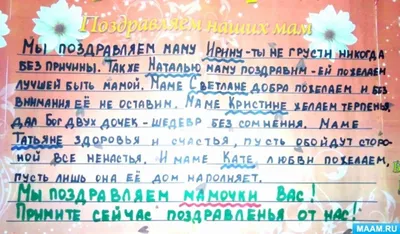 Поздравляем наших мам
Мы поздравляем маму Ирину-ты не грусти никогда
без причины. Также Наталью маму поздравим-ей пожелаем
лучшей быть мамой. Маме Светлане добра пожелаем и без
внимания её не оставим. Маме Кристине желаем терпенья,
дал Бог двух дочек-шедевр без сомнения. Маме
Татьяне здоровья и счастья, пусть обойдут сторо-
ной все ненастья. И маме Кате любви пожелаем,
пусть лишь она её дом наполняет.
Мы поздравляем мамочки Вас!
Примите сейчас поздравленья от нас!
MAAM.RU